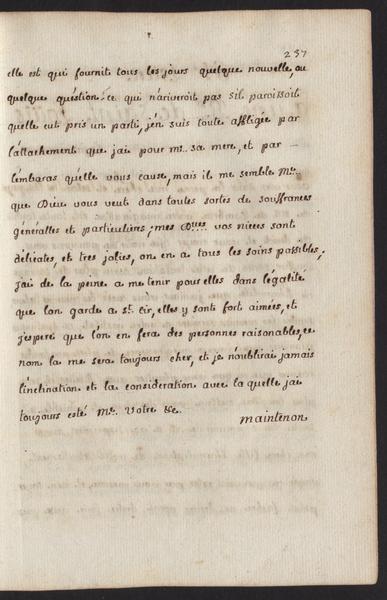 237
elle est qui fournit tous les jours quelque nouvelle, ou
quelque quéstion : ce qui n'ariveroit pas s'il paroissoit
quelle eut pris un parti, j'en suis toute affligée par
l'attachement que j'ai pour me. sa mere, et par —
l'embaras quelle vous cause, mais il me semble Me.
que Dieu vous veut dans toutes sortes de souffrances
généralles et particulieres; mes Dlles. vos niéces sont
délicates, et tres jolies, on en a tous les soins possibles;
j'ai de la peine a me tenir pour elles dans l'égalité
que l'on garde a st. Cir, elles y sont fort aimées, et
j'espere que l'on en fera des personnes raisonables, ce
nom la me sera toujours cher, et je n'oublirai jamais
l'inclination et la consideration avec la quelle j'ai
toujours esté Me. Votre &c.
maintenon